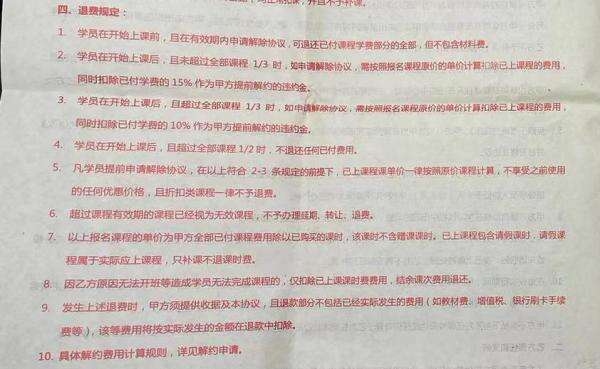 四. 退费规定：
1. 学员在开始上课前，且在有效期内申请解除协议，可退还已付课程学费部分的全部，但不包含材料费。
2. 学员在开始上课后，且未超过全部课程 1/3 时，如申请解除协议，需按照报名课程原价的单价计算扣除已上课程的费用，
同时扣除已付学费的 15% 作为甲方提前解约的违约金。
3. 学员在开始上课后，且超过全部课程 1/3 时，如申请解除协议，需按照报名课程原价的单价计算扣除已上课程的费用，
同时扣除已付学费的 10% 作为甲方提前解约的违约金。
4. 学员在开始上课后，且超过全部课程 1/2 时，不退还任何已付费用。
5. 凡学员提前申请解除协议，在以上符合 2-3 条规定的前提下，已上课程课单价一律按照原价课程计算，不享受之前使用
的任何优惠价格，且折扣类课程一律不予退费。
6. 超过课程有效期的课程已经视为无效课程，不予办理延期、转让、退费。
7. 以上报名课程的单价为甲方全部已付课程费用除以已购买的课时，该课时不含赠课课时。已上课程包含请假课时，请假课
程属于实际应上课程，只补课不退课时费。
8. 因乙方原因无法开班等造成学员无法完成课程的，仅扣除已上课课时费费用，结余课次费用退还。
9. 发生上述退费时，甲方须提供收据及本协议，且退款部分不包括已经实际发生的费用（如教材费、增值税、银行刷卡手续
费等），该等费用将按实际发生的金额在退款中扣除。
10. 具体解约费用计算规则，详见解约申请。